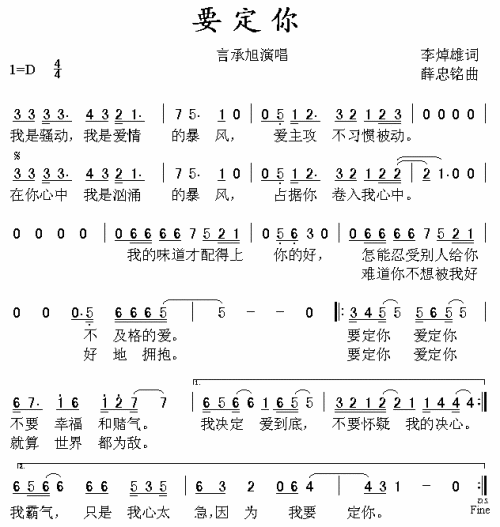 要定你
言承旭演唱
李焯雄词
1=D 4/4
薛忠铭曲
3 3 3 3· 4 3 2 1· | 7 5· 1 0 | 0 5 1 2· 3 2 1 2 3 | 0 0 0 0
我是骚动，我是爱情 的暴 风， 爱主攻 不习惯被动。
3 3 3 3· 4 3 2 1· | 7 5· 1 0 | 0 5 1 2· 3 2 1 2 2 | 2 1· 0 0
在你心中 我是汹涌 的暴 风， 占据你 卷入我心中。
0 0 0 0 | 0 6 6 6 6 6 7 5 2 1 | 0 5 6 3 0 | 0 6 6 6 6 6 7 5 2 1 |
我的味道才配得上 你的好， 怎能忍受别人给你
难道你不想被我好
0 0 0· 5 | 6 6 6 5 | 5 - - 0 |: 3 4 5 5 3 5 5 |
不 及格的爱。 要定你 爱定你
好 地 拥抱。 要定你 爱定你
1.
6 7· 1 6 1 2 7 7 | 6 5 6 6 1 6 5 5 | 3 2 1 2 2 1 1 4 4 :|
不要 幸福 和赌气。 我决定 爱到底， 不要怀疑 我的决心。
就算 世界 都为敌。
2.
6 5 6 6 6 6 5 3 5 | 6 2 0 2 0 6 4 | 4 - - 0 :|
D.S.
我霸气， 只是 我心太 急，因 为 我要 定你。 Fine